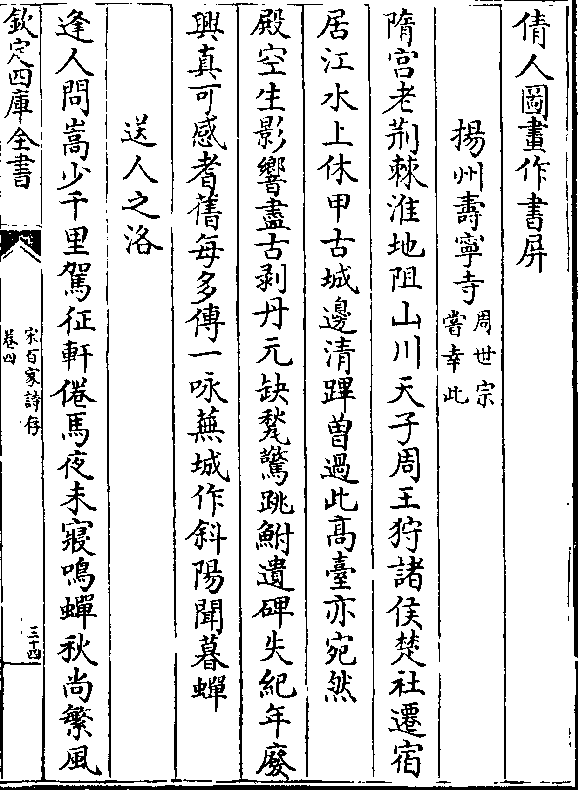 倩人圖畫作書屏
揚州壽寧寺周世宗嘗幸此
隋宫老荆棘淮地阻山川天子周王狩諸侯楚社遷宿
居江水上休甲古城邊清蹕曽過此髙臺亦宛然
殿空生影響畫古剥丹元缺甃驚跳鮒遺碑失紀年廢
興真可感耆舊每多傳一咏蕪城作斜陽聞暮蟬
送人之洛
逢人問嵩少千里駕征軒倦馬夜未寢鳴蟬秋尚繁風
欽定四庫全書
宋百家詩存
卷四
三十四